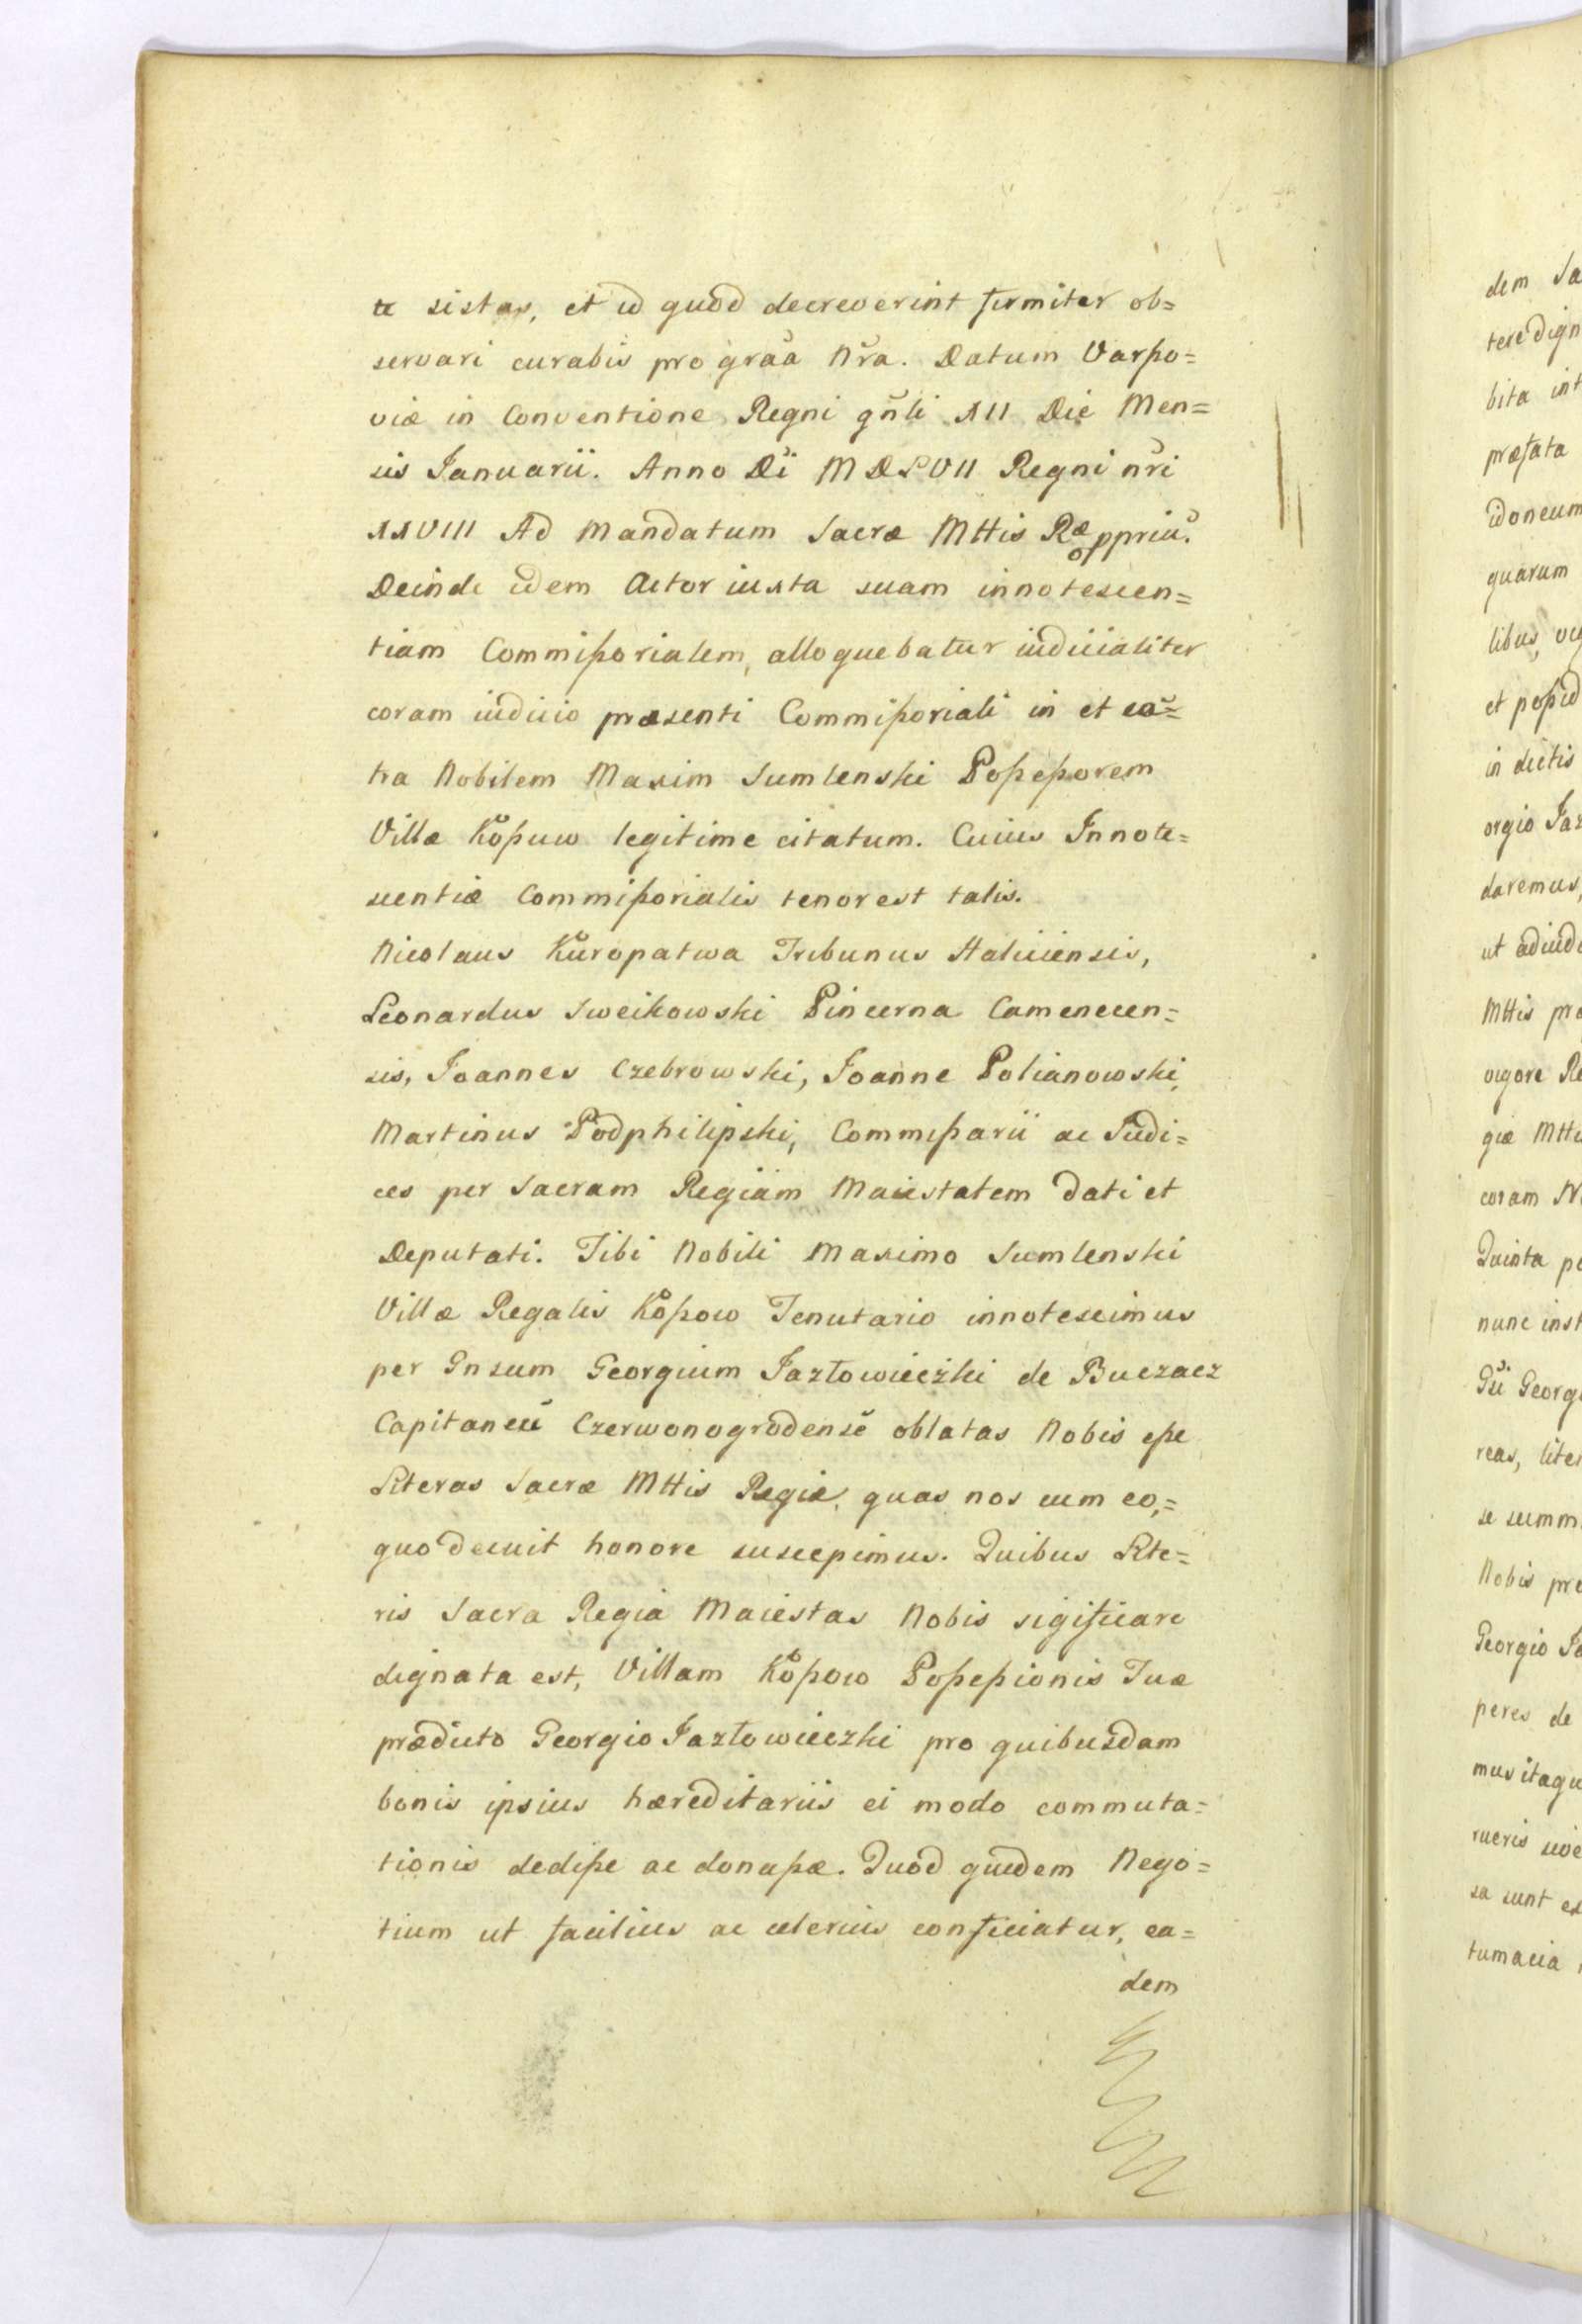 te sistas, et id quod decreverint firmiter ob=
servari curabis pro graã nr̃a. Datum Varßo=
viæ in Conventione Regni gñli XII Die Men=
sis Januarii. Anno Dĩ MDLVII Regni nr̃i
XXVIII Ad Mandatum Sacræ Mttis Ræ ppriũ.
Deinde idem Actor iuxta suam innotescen=
tiam Commißorialem, alloquebatur iudicialiter
coram iudicio præsenti Commißoriali in et cõ=
tra Nobilem Maxim Sumlenski Poßeßorem
Villæ Koßuw legitime citatum. Cuius Innote=
scentiæ Commißorialis tenor est talis.
Nicolaus Kuropatwa Tribunus Haliciensis,
Leonardus Sweikowski Pincerna Camenecen=
sis, Joannes Czebrowski, Joanne Polianowski,
Martinus Podphilipski, Commißarii ac Judi=
ces per Sacram Regiam Maiestatem dati et
Deputati. Tibi Nobili Maximo Sumlenski
Villæ Regalis Koßow Tenutario innotescimus
per Gnsum Georgium Jazłowieczki de Buczacz
Capitaneũ Czerwonogrodensẽ oblatas Nobis eße
Literas Sacræ Mttis Regiæ, quas nos cum eo,=
quo decuit honore suscepimus. Quibus Lite=
ris Sacra Regia Maiestas Nobis sigificare
dignata est, Villam Koßow Poßeßionis Tuæ
prædicto Georgio Jazłowieczki pro quibusdam
bonis ipsius hæreditariis ei modo commuta=
tionis dediße ac donaßæ. Quod quidem Nego=
tium ut facilius ac celerius conficiatur, ea=
dem
dem Sa
tere dign
bita int
præfata
idoneum
quarum
libus,
et poßid
in dictis
orgio Jaz
daremus,
ut adiudi
Mttis pro
vigore Re
giæ Mtti
coram N
Quinta po
nunc inst
Gũ Georgi
reas, liter
se summ
Nobis pre
Georgio Ja
peres de
mus itaqu
rueris sive
sa sunt ex
tumacia